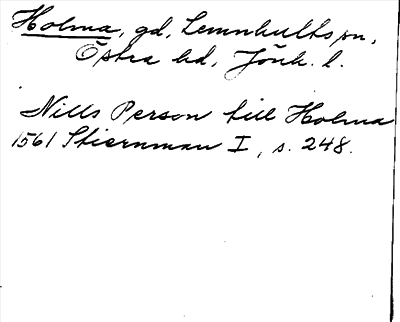 Holma, gd, Lemnhults sn,
Östra hd, Jönk. l.
Nills Person till Holma
1561 Stiernman I, s. 248.